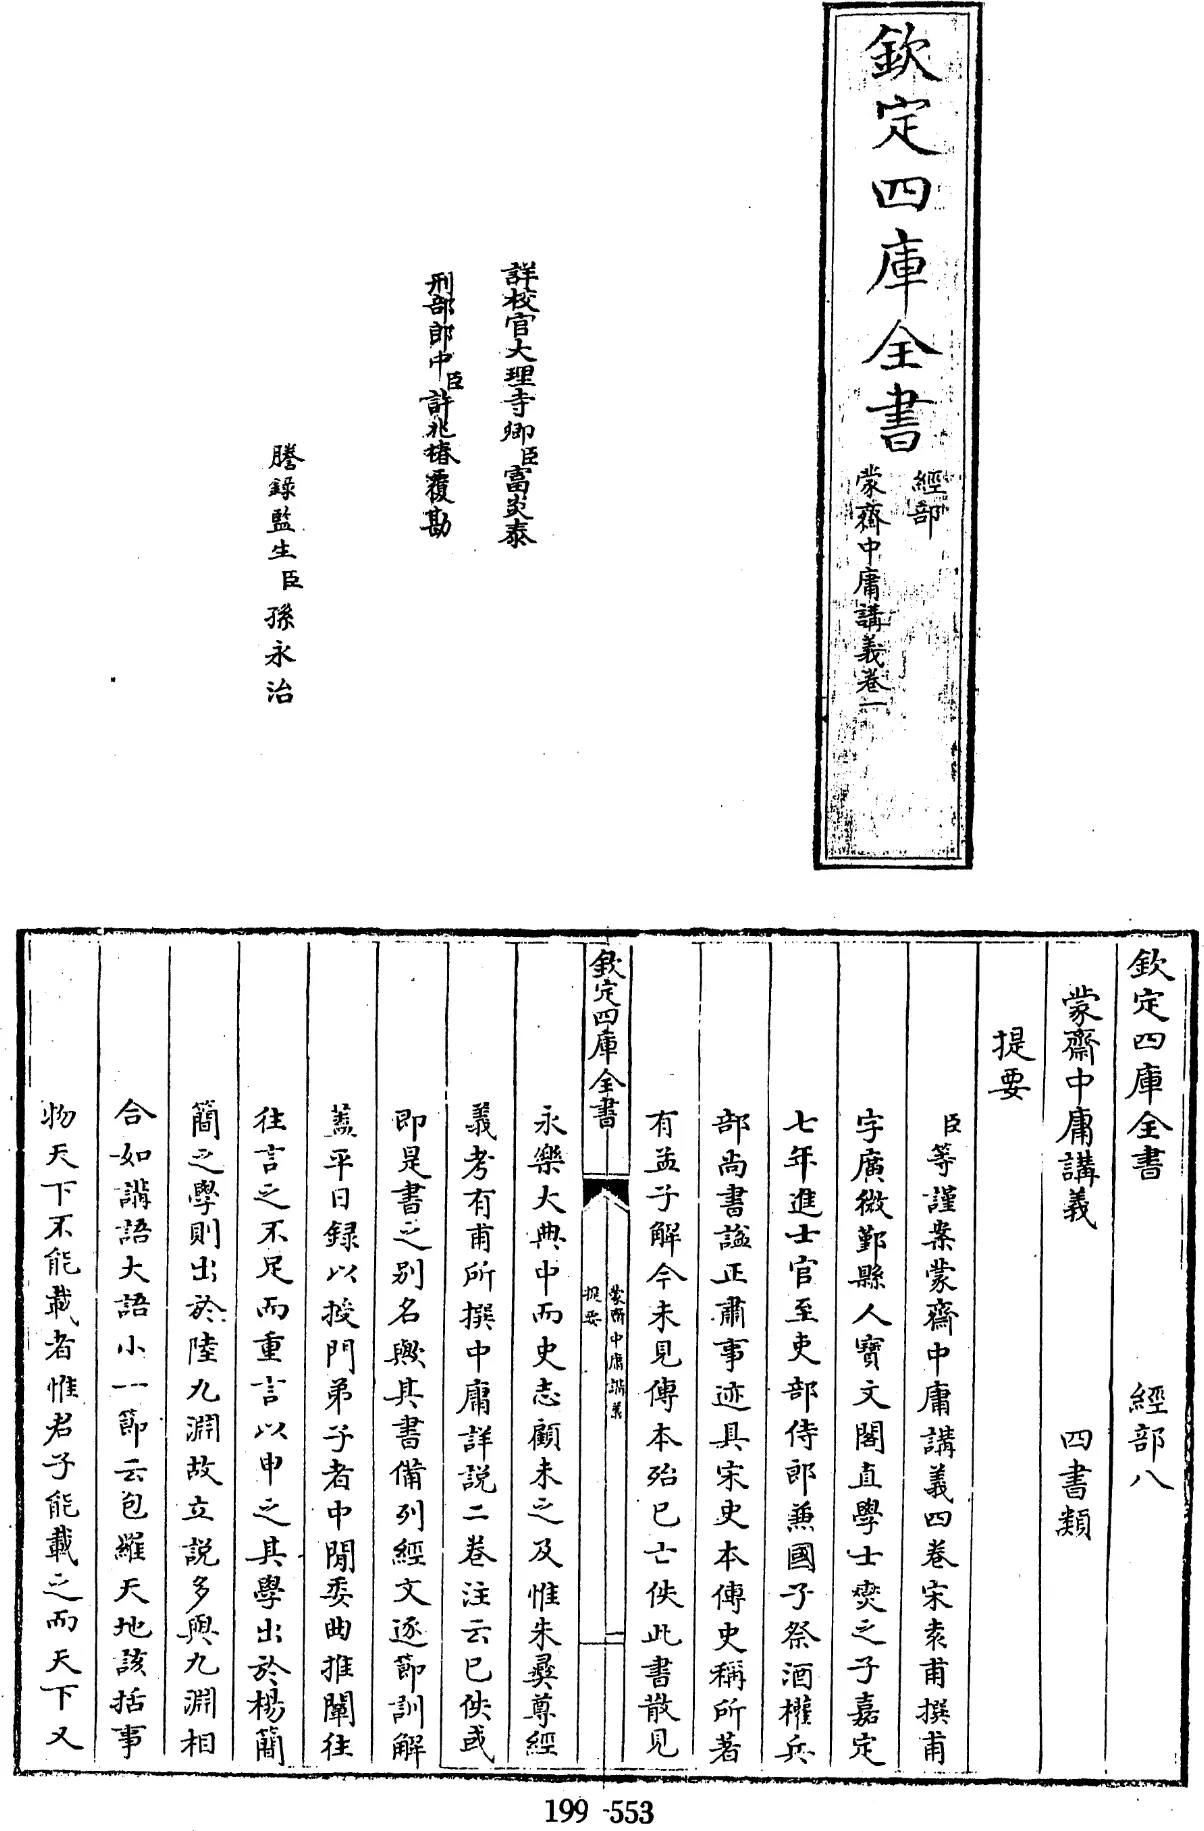 欽定四庫全書
經部
蒙齋中庸講義卷一
詳校官大理寺卿臣富炎泰
刑部郎中臣許兆椿覆勘
謄錄監生臣孫永治
欽定四庫全書 經部八
蒙齋中庸講義 四書類
提要
臣等謹案蒙齋中庸講義四卷宋袁甫撰甫
字廣微鄞縣人寶文閣直學士爕之子嘉定
七年進士官至吏部侍郎兼國子祭酒權兵
部尚書諡正肅事迹具宋史本傳史稱所著
有孟子解今未見傳本殆已亡佚此書散見
欽定四庫全書
蒙齋中庸講義
提要
一
永樂大典中而史志顧未之及惟朱彝尊經
義考有甫所撰中庸詳説二卷注云已佚或
即是書之别名歟其書備列經文逐節訓解
葢平日録以授門弟子者中閒委曲推闡往
往言之不足而重言以申之其學出於楊簡
簡之學則出於陸九淵故立説多與九淵相
合如講語大語小一節云包羅天地該括事
物天下不能載者惟君子能載之而天下又
199-553